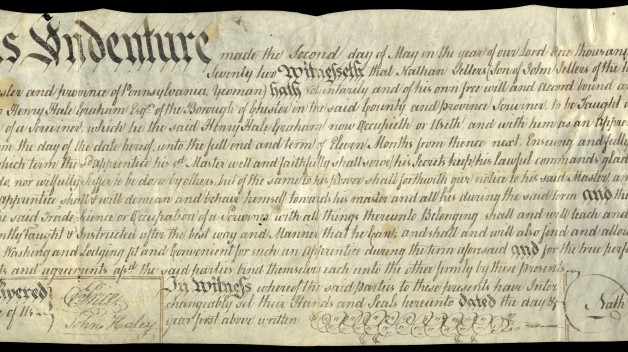 s Indenture made the Second day of May in the year of our Lord One thousand
Seventy two Witnesseth that Nathan Sellers (Son of John Sellers of the
ester and province of Pennsylvania Yeoman) hath Voluntarily and of his own free will and Accord bound
Henry Hale Graham Esqr. of the Borough of Chester in the said County and Province Scrivener, to be Taught
of a Scrivener, which he the said Henry Hale Graham now Occupieth or Useth, and with him as an Appre
m the day of the date hereof, unto the full end and term of Eleven Months from thence next Ensuing and fully
which term the Sd. apprentice his sd. Master well and faithfully shall serve, his Secrets keep, his lawful commands glad
do, nor wilfully suffer to be done by others, but of the same to his power shall forthwith give notice to his said Master, an
apprentice shall & will demean and behave himself towards his master and all his during the said term and the
the said Trade Science or Occupation of a Scrivener with all things thereunto Belonging shall and will teach and
ntly Taught & Instructed after the best way and Manner that he Can, and shall and will also find and allow
Washing and Lodging fit and Convenient for such an Apprentice during the term aforesaid and for the true perfo
ts and agreements afsd. the said parties bind themselves each unto the other firmly by these presents
ivered In Witness whereof the said Parties to these presents have Inter
changeably set their Hands and Seals hereunto dated the day &
e of Us John Haley year first above written Nath